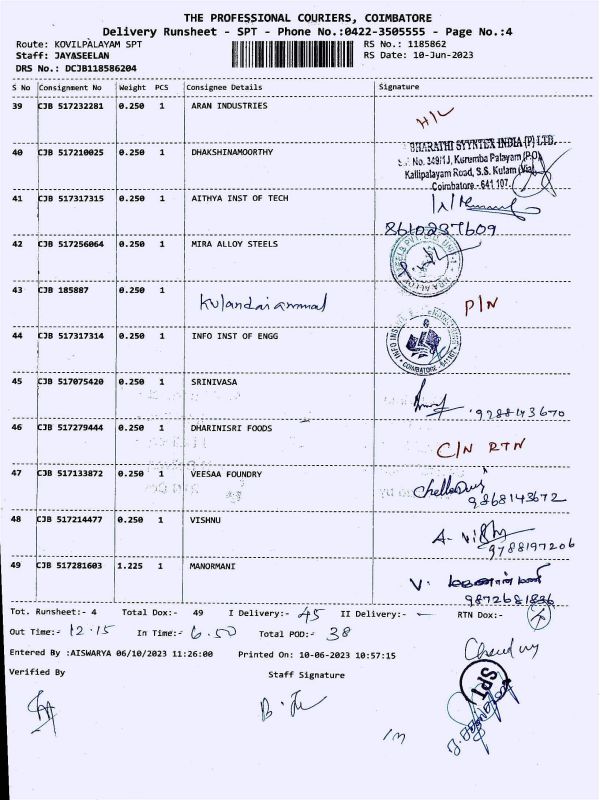 THE PROFESSIONAL COURIERS, COIMBATORE
Delivery Runsheet - SPT - Phone No.:0422-3505555 - Page No.:4
Route: KOVILPALAYAM SPT RS No.: 1185862
Staff: JAYASEELAN RS Date: 10-Jun-2023
DRS No.: DCJB118586204
S No Consignment No Weight PCS Consignee Details Signature
39 CJB 517232281 0.250 1 ARAN INDUSTRIES
H/L
40 CJB 517210025 0.250 1 DHAKSHINAMOORTHY
BHARATHI SYYNTEX INDIA (P) LTD.
S.F. No. 349/1J, Kurumba Palayam (P.O)
Kallipalayam Road, S.S. Kulam (Via)
Coimbatore - 641 107.
41 CJB 517317315 0.250 1 AITHYA INST OF TECH
8610237609
42 CJB 517256064 0.250 1 MIRA ALLOY STEELS
43 CJB 185887 0.250 1 Kulandaiammal P/N
44 CJB 517317314 0.250 1 INFO INST OF ENGG
COIMBATORE
45 CJB 517075420 0.250 1 SRINIVASA
9788143670
46 CJB 517279444 0.250 1 DHARINISRI FOODS
C/N RTN
47 CJB 517133872 0.250 1 VEESAA FOUNDRY
9868143672
48 CJB 517214477 0.250 1 VISHNU
9788197206
49 CJB 517281603 1.225 1 MANORMANI
V.
Tot. Runsheet:- 4 Total Dox:- 49 I Delivery:- 45 II Delivery:- - RTN Dox:-
Out Time:- 12.15 In Time:- 6.50 Total POD:- 38
Entered By :AISWARYA 06/10/2023 11:26:00 Printed On: 10-06-2023 10:57:15
Verified By Staff Signature
SPT